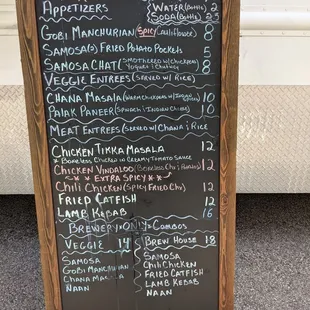 Appetizers
Water (Bottle) 2
Soda (Bottle) 2.5
Gobi Manchurian (Spicy Cauliflower) 8
Samosa(s) Fried Potato Pockets 5
Samosa Chat (Smothered w/ Chickpeas Yogurt & Chutney) 8
Veggie Entrees (Served w/ Rice)
Chana Masala (Warm Chickpeas w/ Indian 10
Palak Paneer (Spinach & Indian Cheese) 10
Meat Entrees (Served w/ Chana & Rice
Chicken Tikka Masala 12
* Boneless Chicken in Creamy Tomato Sauce
Chicken Vindaloo (Boneless Chx & Potato) 12
* * Extra Spicy * *
Chili Chicken (Spicy Fried Chx) 12
Fried Catfish 12
Lamb Kebab 16
Brewery Only Combos
Veggie 14
Samosa
Gobi Manchurian
Chana Masala
Naan
Brew House 18
Samosa
Chili Chicken
Fried Catfish
Lamb Kebab
Naan